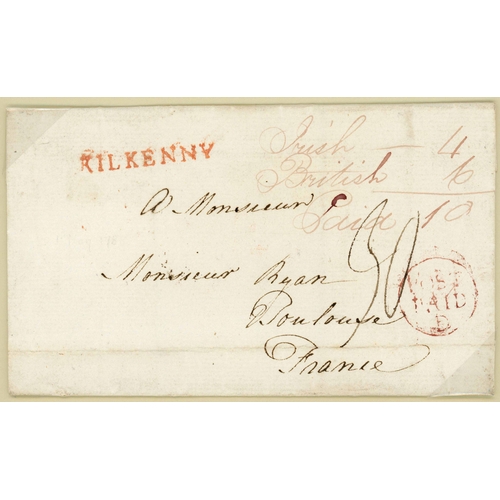 KILKENNY
Irish — 4
British 6
Paid 10
A Monsieur
Monsieur Ryan
Toulouse
France
30
POST
PAID